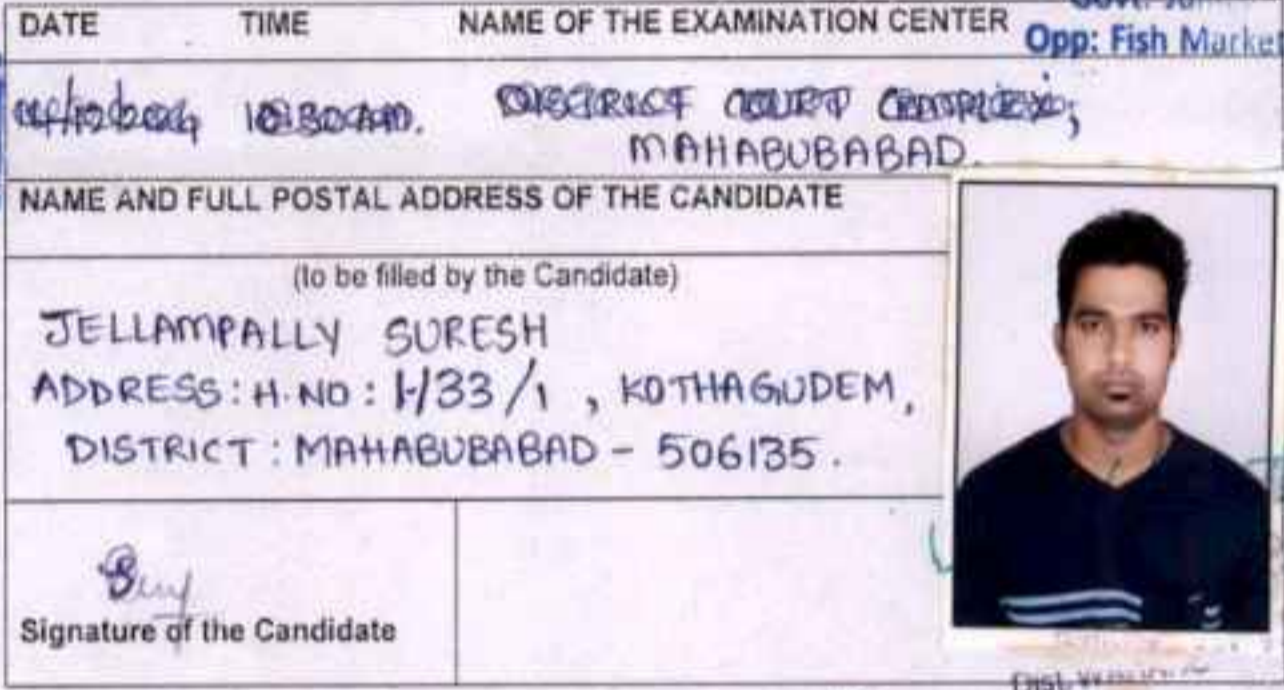 DATE TIME NAME OF THE EXAMINATION CENTER
Opp: Fish Market
10:30AM. DISTRICT COURT COMPLEX,
MAHABUBABAD.
NAME AND FULL POSTAL ADDRESS OF THE CANDIDATE
(to be filled by the Candidate)
JELLAMPALLY SURESH
ADDRESS: H.NO: 1-133/1, KOTHAGUDEM,
DISTRICT: MAHABUBABAD - 506135.
Signature of the Candidate